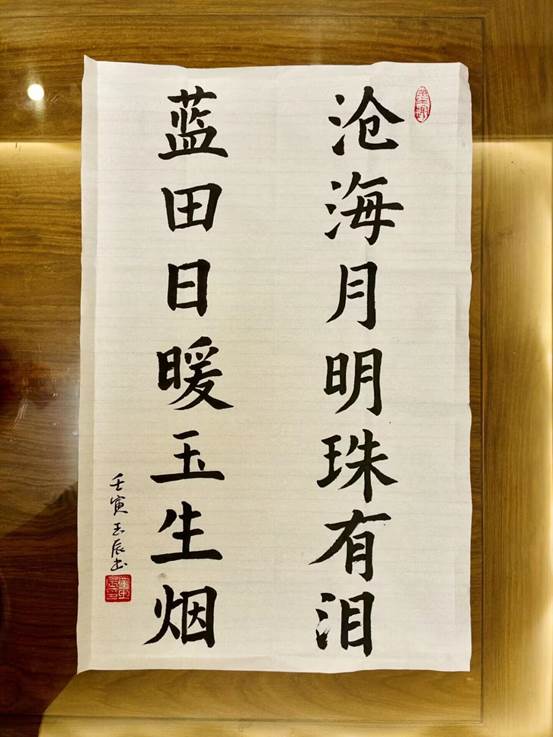 沧海月明珠有泪
蓝田日暖玉生烟
壬寅玉辰书